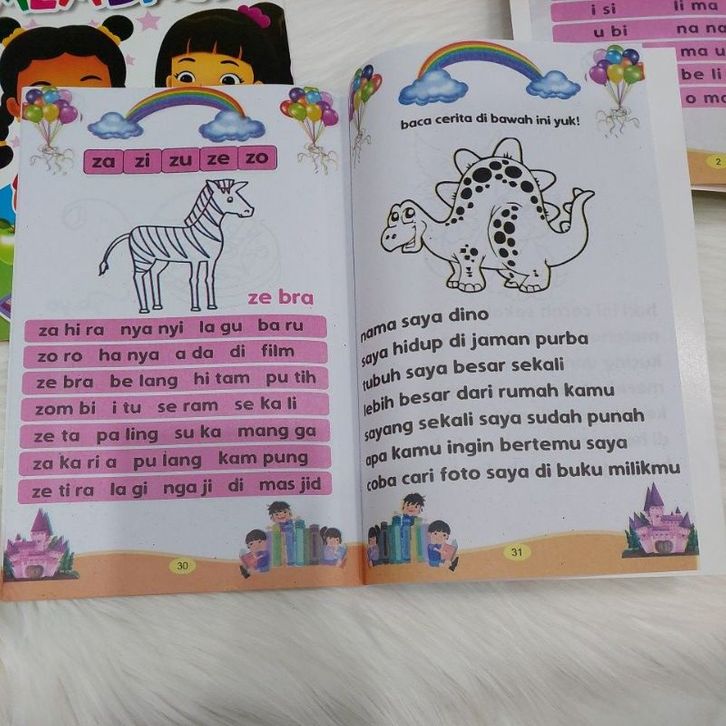 za zi zu ze zo
ze bra
za hi ra nya nyi la gu ba ru
zo ro ha nya a da di film
ze bra be lang hi tam pu tih
zom bi i tu se ram se ka li
ze ta pa ling su ka mang ga
za ka ri a pu lang kam pung
ze ti ra la gi nga ji di mas jid
30
baca cerita di bawah ini yuk!
nama saya dino
saya hidup di jaman purba
tubuh saya besar sekali
lebih besar dari rumah kamu
sayang sekali saya sudah punah
apa kamu ingin bertemu saya
coba cari foto saya di buku milikmu
31
i si li ma
u bi na na
ma u
be li
2